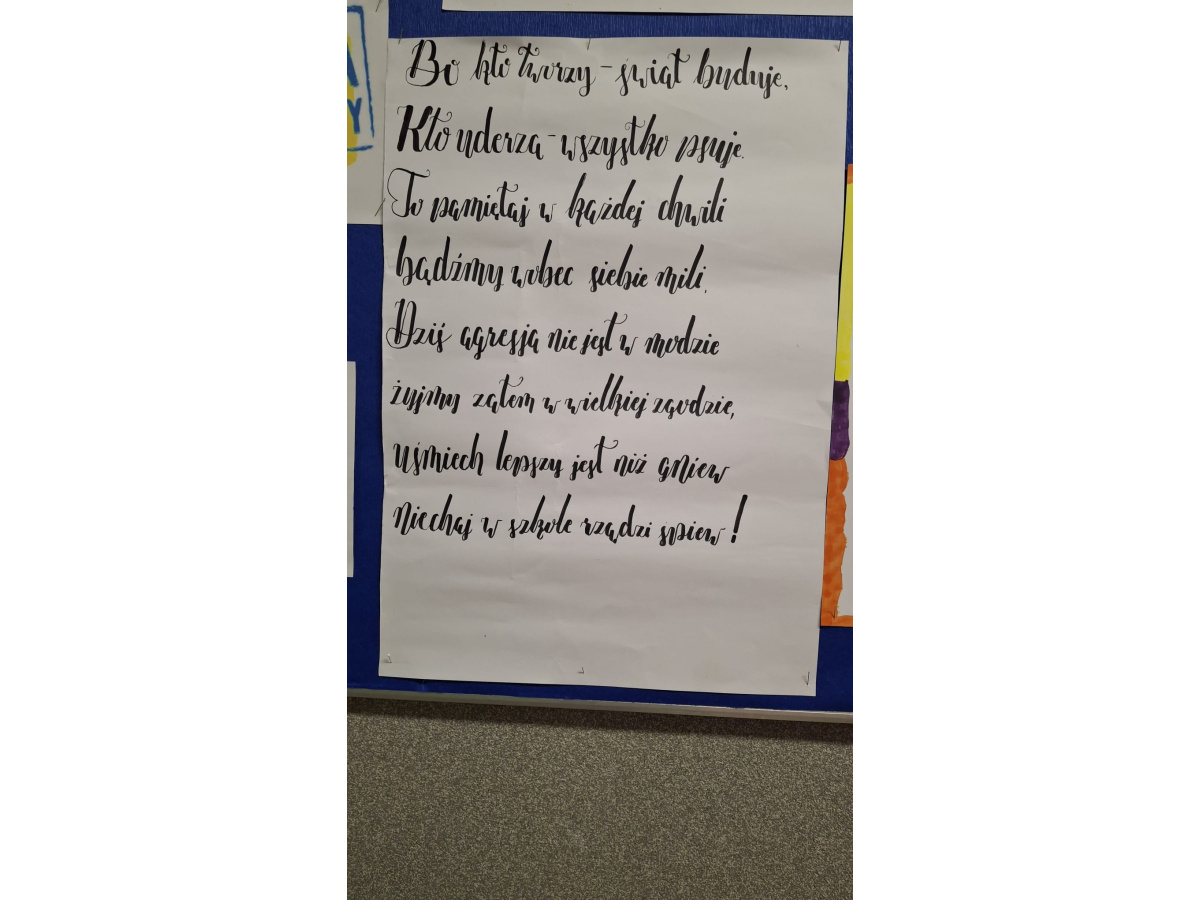 A
Y
Bo kto tworzy - świat buduje,
Kto uderza - wszystko psuje.
To pamiętaj w każdej chwili
bądźmy wobec siebie mili.
Dziś agresja nie jest w modzie
żyjmy zatem w wielkiej zgodzie,
uśmiech lepszy jest niż gniew
niechaj w szkole rządzi spiew!